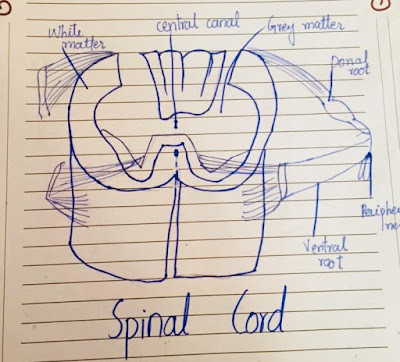 White
matter
central canal
Grey matter
Dorsal
root
Periphe
ne
Ventral
root
Spinal Cord